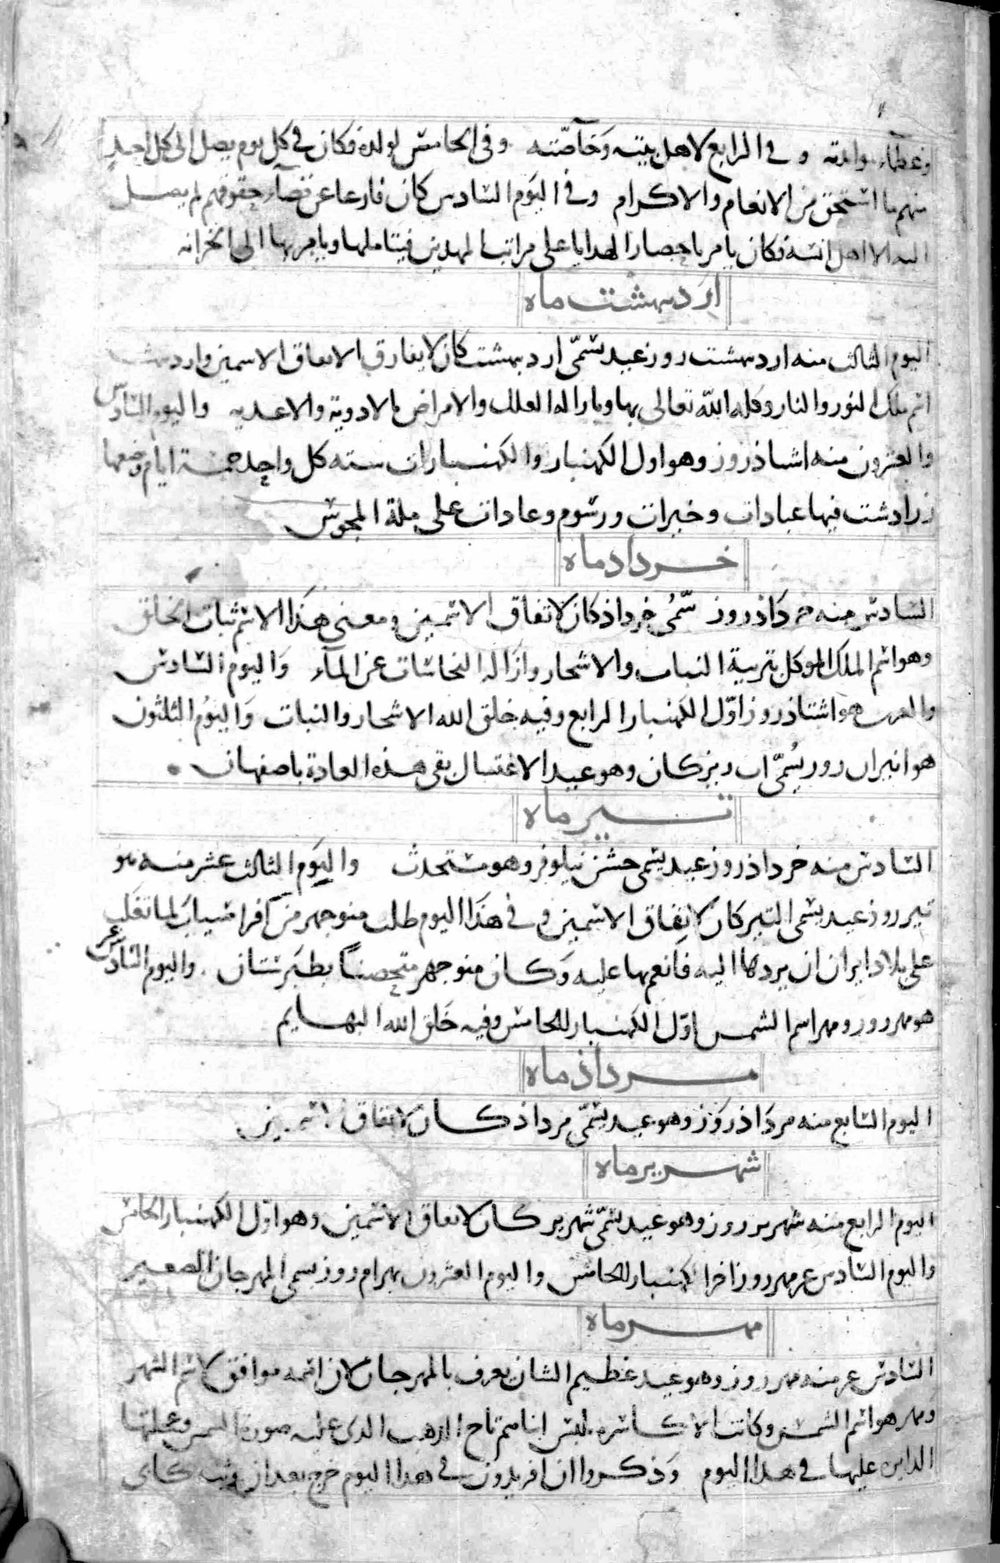 وعظماء موابدته وفي الرابع لاهل بيته وخاصّته وفي الخامس لولده فكان في كل يوم يصل الى كل احد
منهم ما استحق من الانعام والاكرام وفي اليوم السادس كان فارغا عن قضاء حقوقهم لم يصل
اليه الا اهل انسه فكان يامر باحضار الهدايا على مراتب المهدين فيتاملها ويامر بها الى الخزانه
ارديبهشت ماه
اليوم الثالث منه ارديبهشت روز عيد يسمّى ارديبهشتكان لاتفاق الاسمين وارديبهشت
اسم ملك النور والنار وكله الله تعالى بها وبازالة العلل والامراض بالادوية والاغذيه واليوم السادس
والعشرون منه اشتاذ روز وهو اول الكهنبار والكهنبارات سته كل واحد خمسة ايام وضعها
زرادشت فيها عبادات وخيرات ورسوم وعادات على ملة المجوس
خرداد ماه
السادس منه خرداذ روز سمّي خرداذكان لاتفاق الاسمين ومعنى هذا الاسم ثبات الخلق
وهو اسم الملك الموكل بتربية النبات والاشجار وازالة النجاسات عن المآء واليوم السادس
والعشرون هو اشتاذ روز اوّل الكهنبار الرابع وفيه خلق الله الاشجار والنبات واليوم الثلثون
هو انيران روز يسمّى اب ريزكان وهو عيد الاغتسال بقى هذه العادة باصفهان
تير ماه
السادس منه خرداذ روز عيد يسمى جشن نيلوفر وهو مستحدث واليوم الثالث عشر منه هو
تير روز عيد يسمى التيركان لاتفاق الاسمين وفي هذا اليوم طلب منوجهر من افراسياب لما تغلب
على بلاد ايران ان يردها اليه فانعم بها عليه وكان منوجهر متحصنا بطبرستان واليوم السادس عشر
هو مهر روز ومهر اسم الشمس اوّل الكهنبار الخامس وفيه خلق الله البهايم
مرداذ ماه
اليوم السابع منه مرداذ روز وهو عيد يسمّى مرداذكان لاتفاق الاسمين
شهرير ماه
اليوم الرابع منه شهرير روز وهو عيد يسمّى شهريركان لاتفاق الاسمين وهو اوّل الكهنبار الخامس
واليوم السادس عشر مهر روز اخر الكهنبار الخامس واليوم العشرون بهرام روز يسمى المهرجان الصغير
مهر ماه
السادس عشر منه مهر روز وهو عيد عظيم الشان يعرف بالمهرجان لان اسمه موافق لاسم الشهر
ومهر هو اسم الشمس وكانت الاكاسره تلبس ابناءهم تاج الذهب الذي عليه صورة الشمس وعجلتها
الداير عليها في هذا اليوم وذكروا ان افريدون في هذا اليوم خرج بعد ان وثب كابى